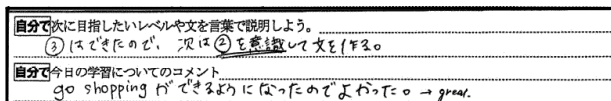 自分で次に目指したいレベルや文を言葉で説明しよう。
③はできたので、次は②を意識して文を作る。
自分で今日の学習についてのコメント
go shoppingができるようになったのでよかった。→great.